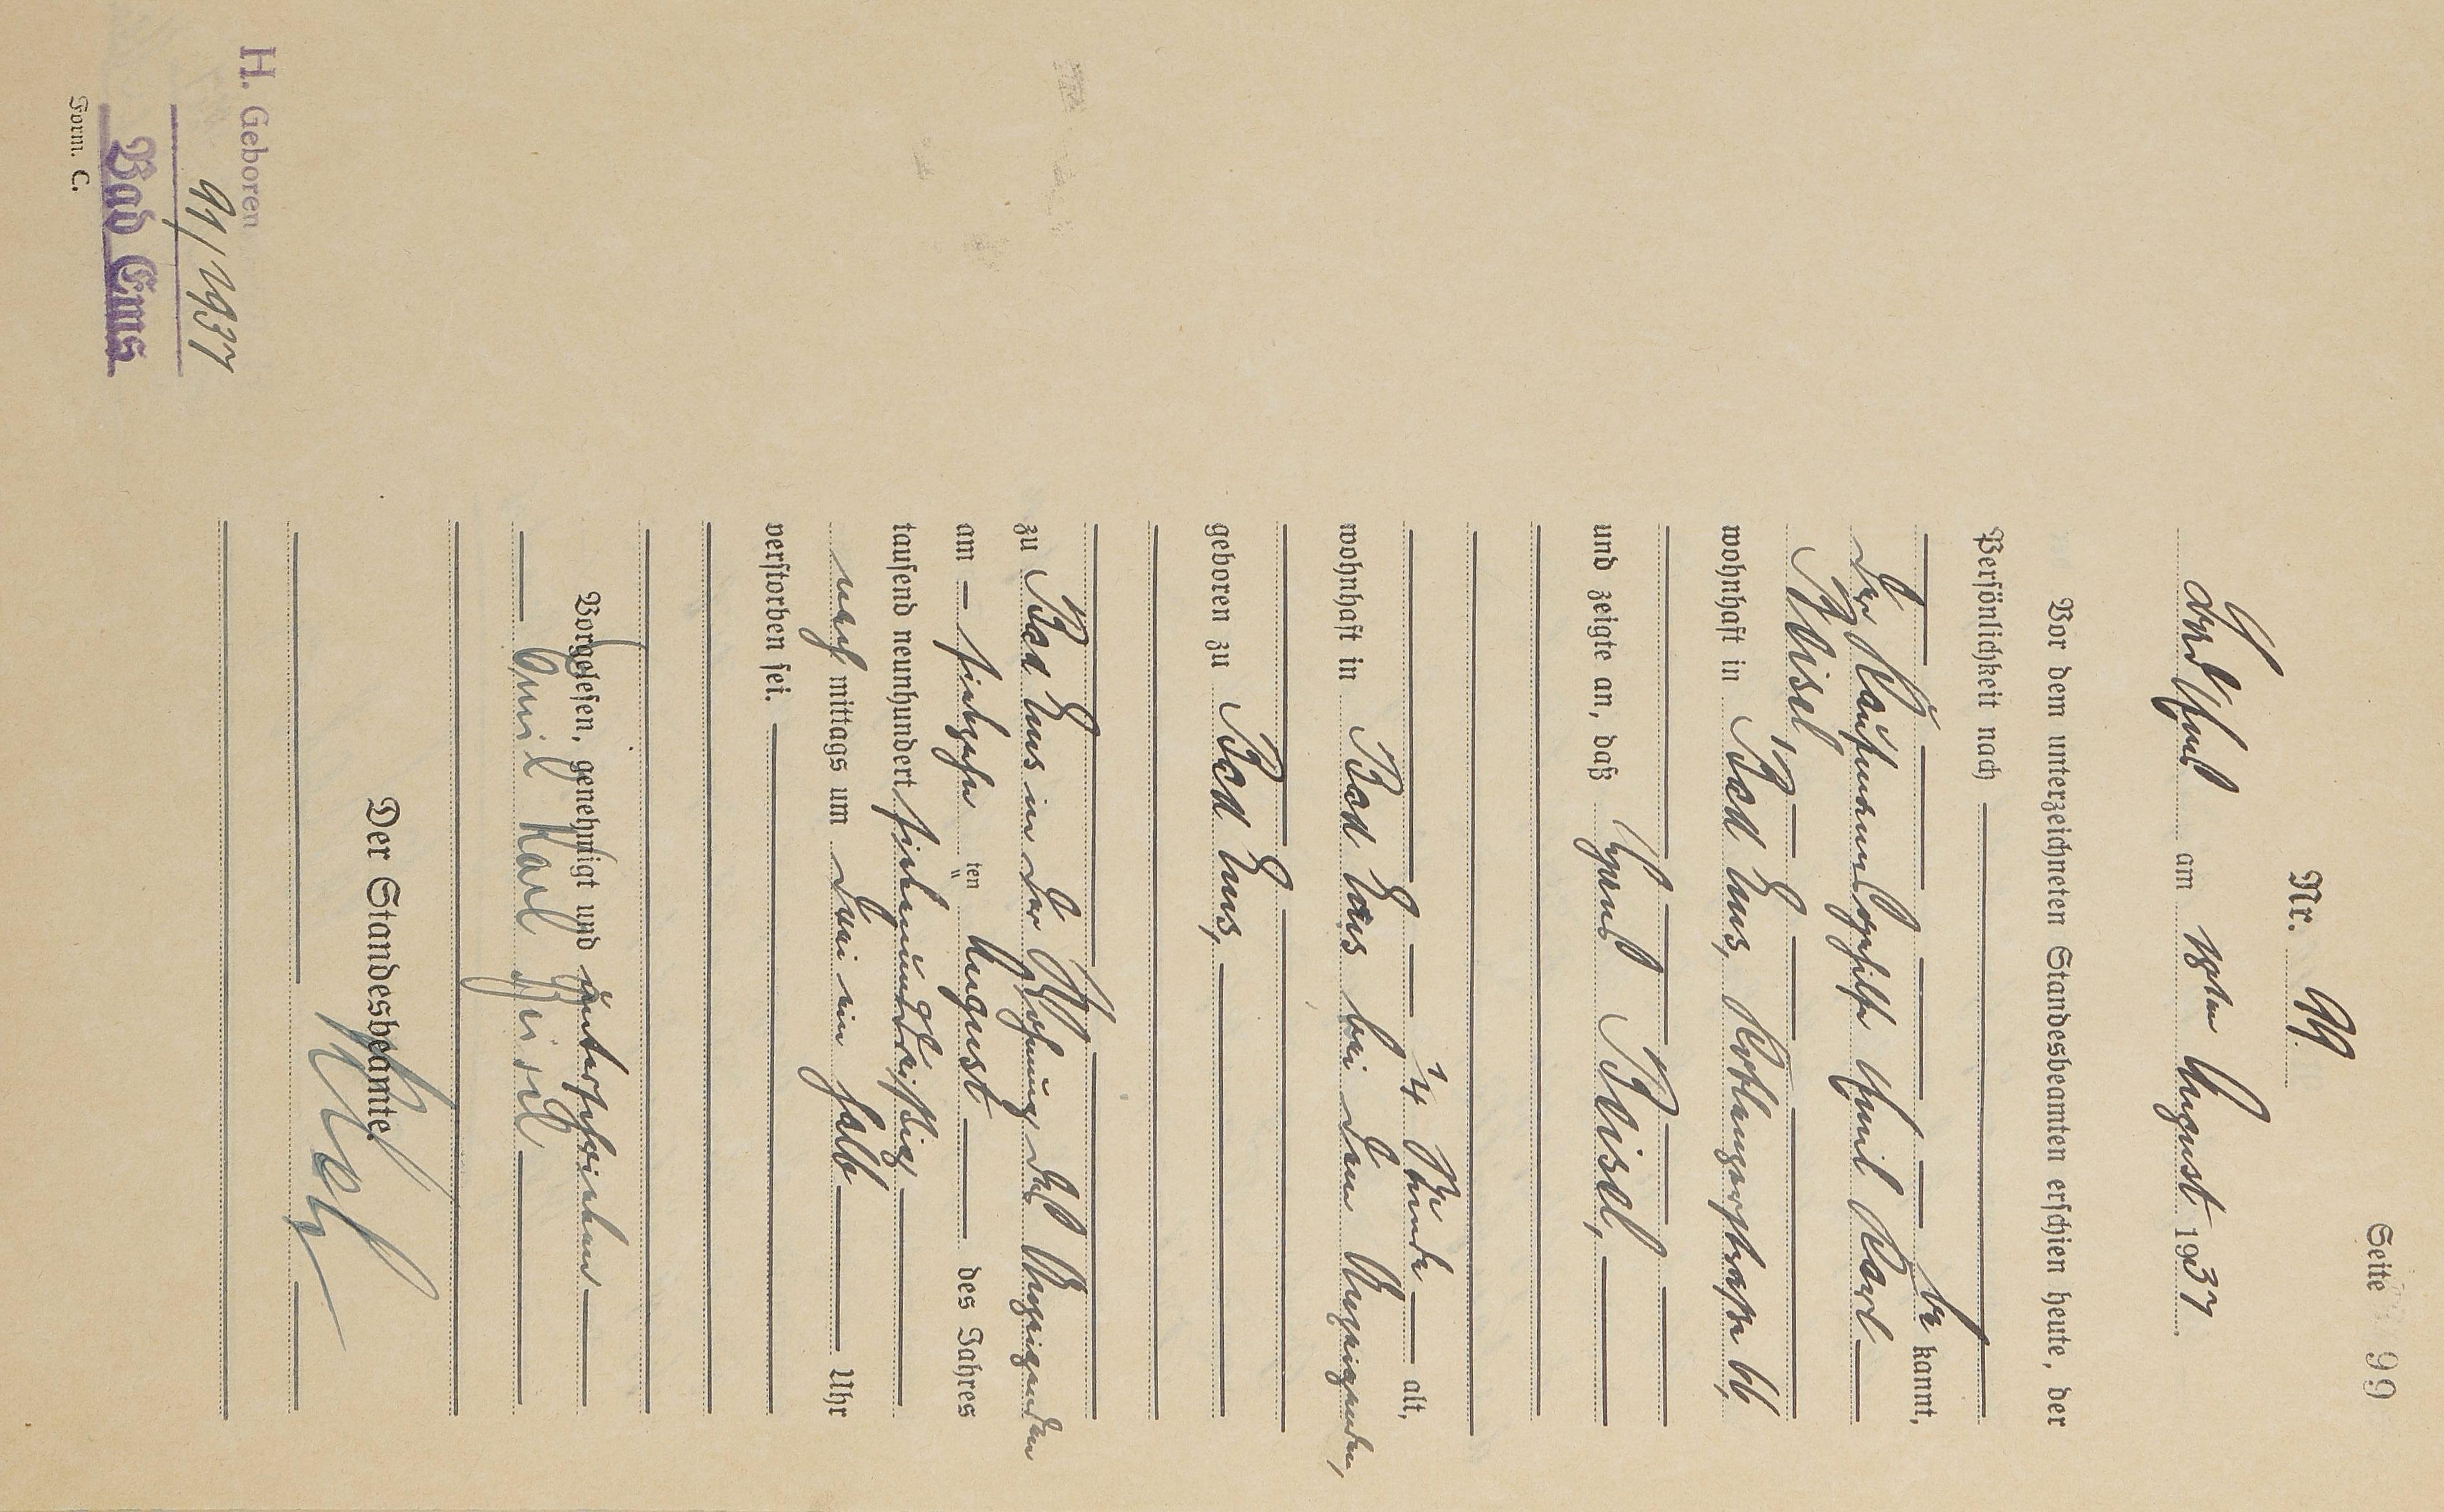 Seite 99
Nr. 99
Bad Ems am 18ten August 1937
Vor dem unterzeichneten Standesbeamten erschien heute, der
Persönlichkeit nach
be kannt,
der Kaufmannsgehilfe Emil Karl
Geisel,
wohnhaft in Bad Ems, Koblenzerstraße 66,
und zeigte an, daß Geisel,
1/4 Stunde alt,
wohnhaft in Bad Ems bei dem Anzeigenden,
geboren zu Bad Ems,
zu Bad Ems in der Wohnung des Anzeigenden
am siebzehn ten August des Jahres
tausend neunhundert siebenunddreißig
nach mittags um drei ein halb Uhr
verstorben sei.
Vorgelesen, genehmigt und unterschrieben
Emil Karl Geisel
Der Standesbeamte.
H. Geboren
91/1937
Bad Ems
Form. C.